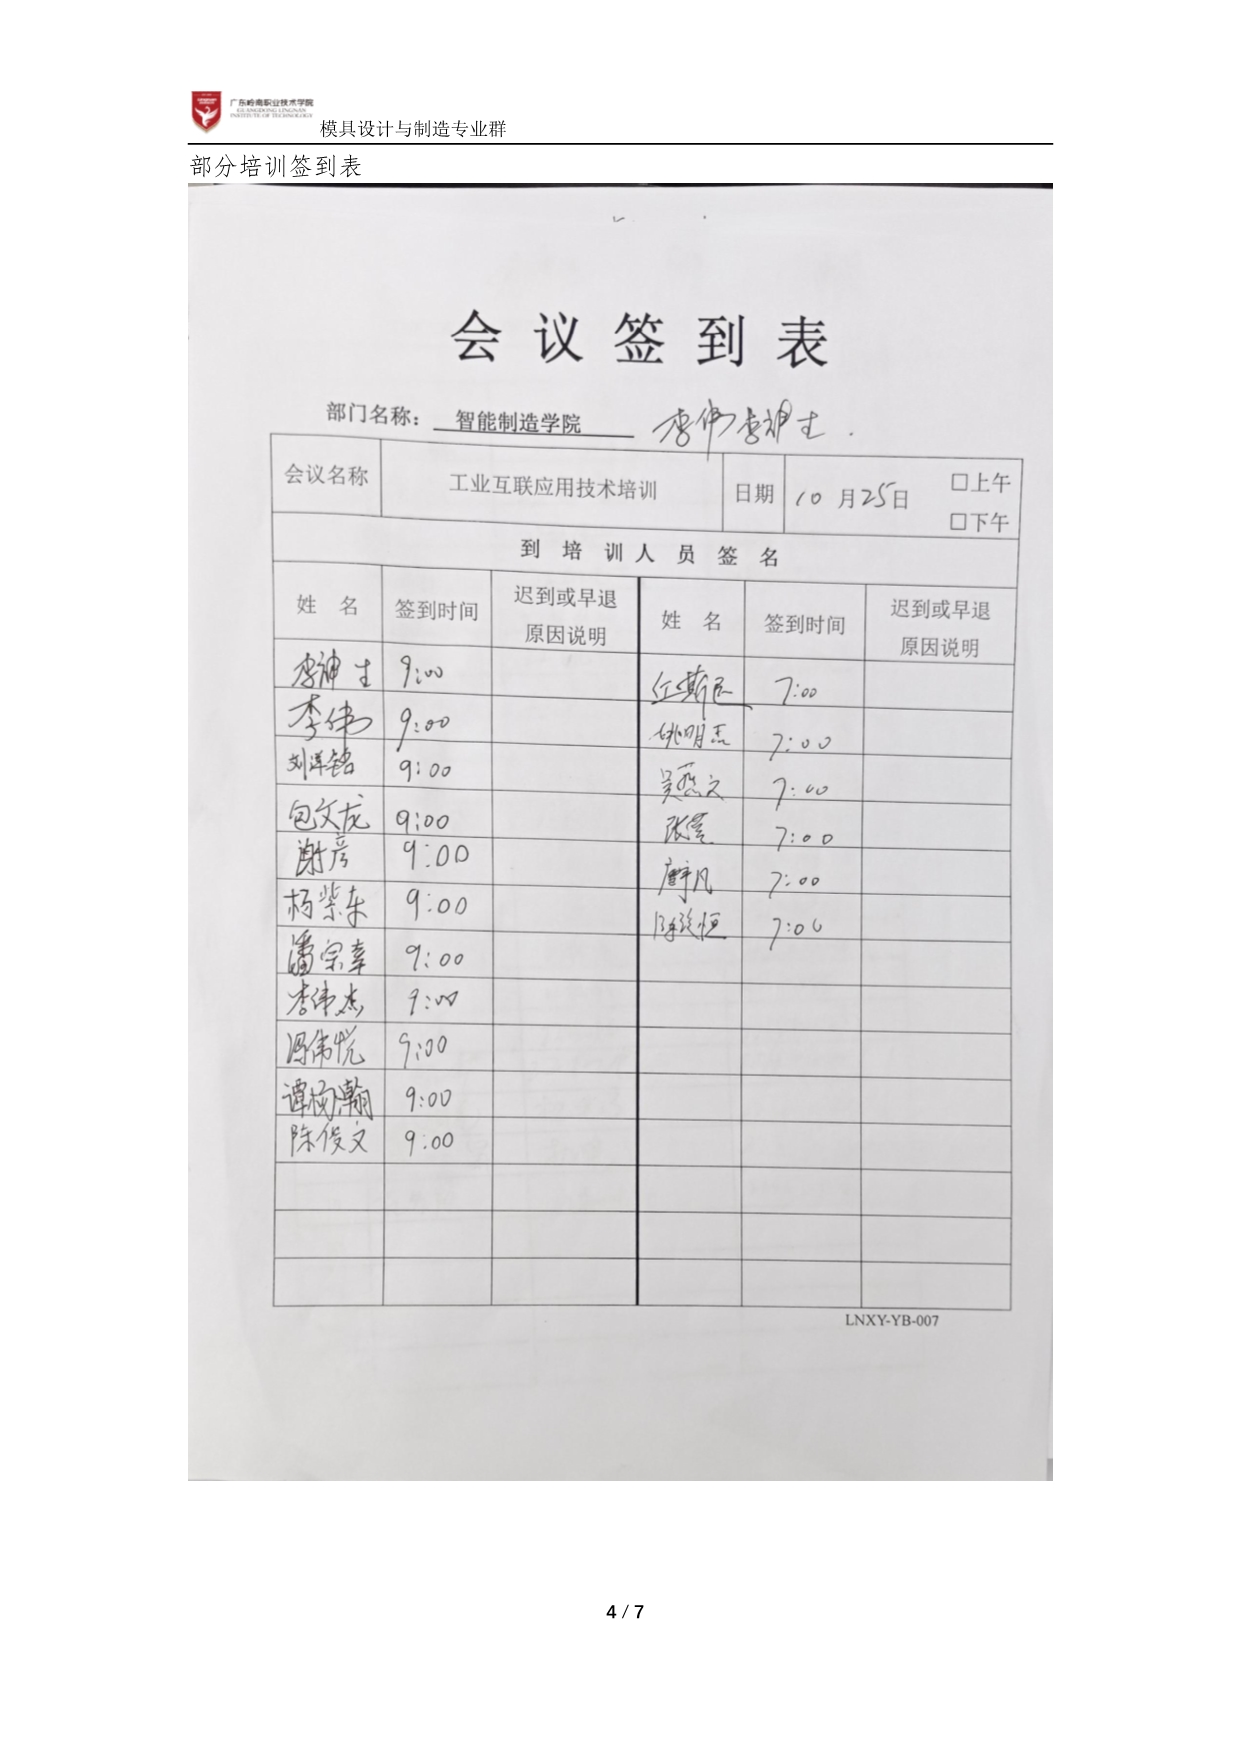 广东岭南职业技术学院
GUANGDONG LINGNAN
INSTITUTE OF TECHNOLOGY
模具设计与制造专业群
部分培训签到表
会议签到表
部门名称： 智能制造学院 李伟 李神生.
会议名称 工业互联应用技术培训 日期 10月25日 □上午
□下午
到培训人员签名
姓名 签到时间 迟到或早退原因说明 姓名 签到时间 迟到或早退原因说明
李神生 9:00 7:00
李伟 9:00 姚明杰 7:00
刘洋铭 9:00 吴燕文 7:00
包文龙 9:00 张 7:00
谢彦 9:00 7:00
杨紫东 9:00 7:00
潘宗幸 9:00
李伟杰 9:00
冯伟悦 9:00
谭杨瀚 9:00
陈俊文 9:00
LNXY-YB-007
4 / 7